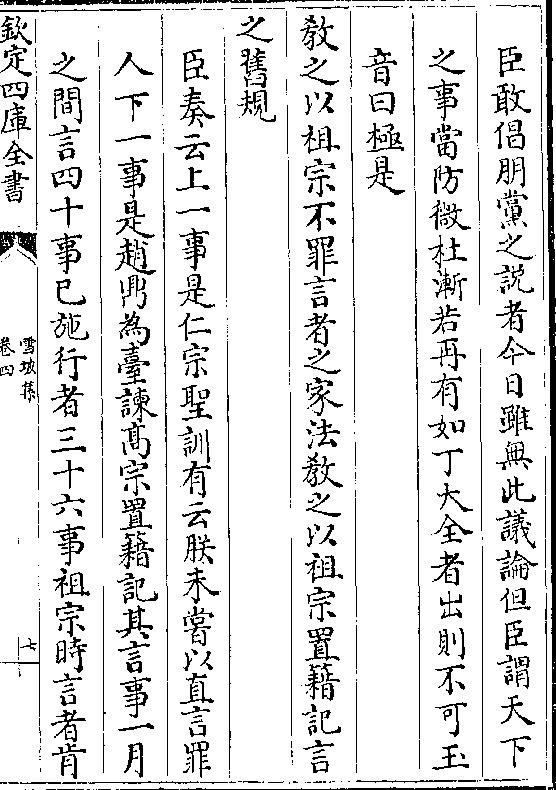 臣敢倡朋黨之説者今日雖無此議論但臣謂天下
之事當防微杜漸若再有如丁大全者出則不可玉
音曰極是
教之以祖宗不罪言者之家法教之以祖宗置籍記言
之舊規
臣奏云上一事是仁宗聖訓有云朕未嘗以直言罪
人下一事是趙鼎為臺諫髙宗置籍記其言事一月
之間言四十事已施行者三十六事祖宗時言者肯
欽定四庫全書
雪坡集
卷四
七